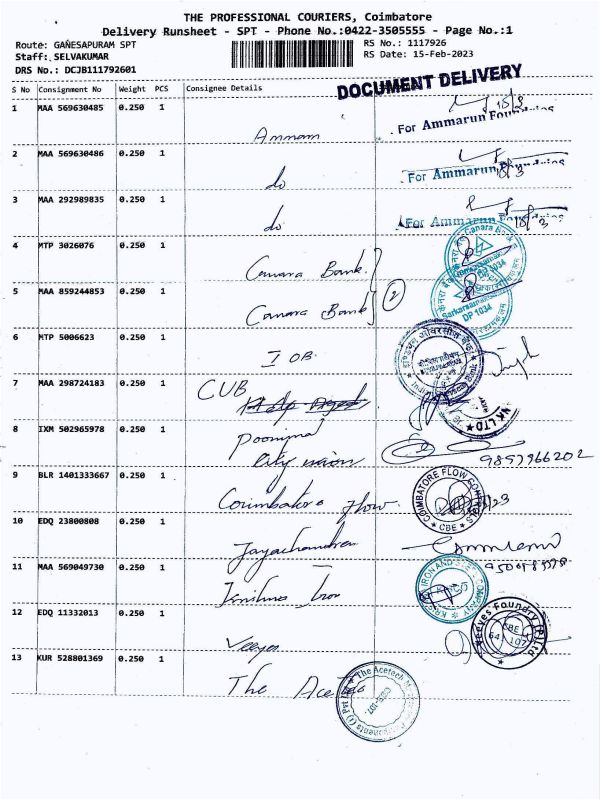 THE PROFESSIONAL COURIERS, Coimbatore
Delivery Runsheet - SPT - Phone No.:0422-3505555 - Page No.:1
Route: GANESAPURAM SPT
RS No.: 1117926
Staff: SELVAKUMAR
RS Date: 15-Feb-2023
DRS No.: DCJB111792601
DOCUMENT DELIVERY
S No Consignment No Weight PCS Consignee Details
1 MAA 569630485 0.250 1
Ammam
For Ammarun Foundries
2 MAA 569630486 0.250 1
do
For Ammarun Foundries
3 MAA 292989835 0.250 1
do
For Ammarun Foundries
4 MTP 3026076 0.250 1
Canara Bank
Canara Bank
DP 1034
5 MAA 859244853 0.250 1
Canara Bank
2
DP 1034
6 MTP 5006623 0.250 1
I OB
7 MAA 298724183 0.250 1
CUB
NK LTD
8 IXM 502965978 0.250 1
city union
9 BLR 1401333667 0.250 1
Coimbatore Flow
COIMBATORE FLOW
CBE
10 EDQ 23800808 0.250 1
Jayachandra
11 MAA 569049730 0.250 1
Krishna Iron
IRON AND STEEL COMPANY
12 EDQ 11332013 0.250 1
Veeyes
Veeyes Foundry (P) Ltd
CBE
64 107
13 KUR 528801369 0.250 1
The Acetec
The Acetech